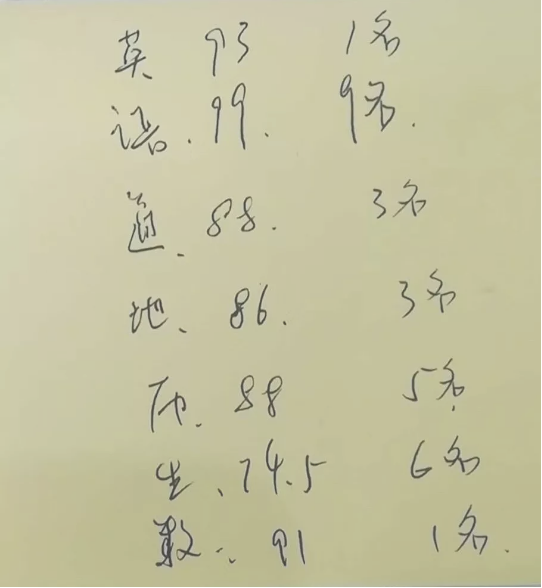 英 93 1名
语. 99. 9名.
道. 88. 3名
地. 86. 3名
历. 88 5名
生. 74.5 6名
数.. 91 1名.